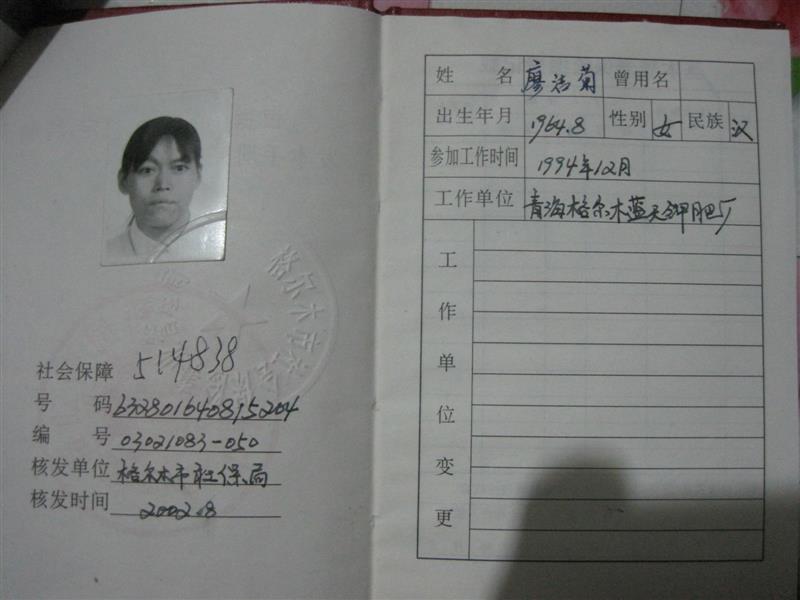 社会保障 514838
号 码 632801640815204
编 号 03021083-050
核发单位 格尔木市社保局
核发时间 2002.8
姓 名 廖洁菊 曾用名
出生年月 1964.8 性别 女 民族 汉
参加工作时间 1994年12月
工作单位 青海格尔木蓝天钾肥厂
工作单位变更